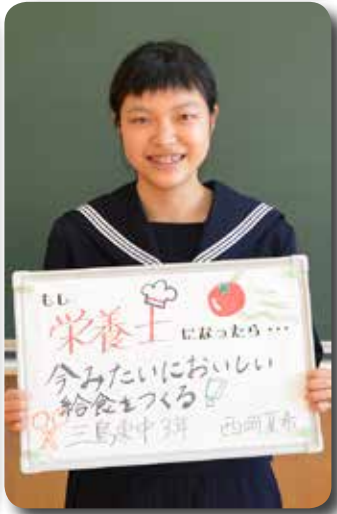 もし
栄養士になったら…
今みたいにおいしい
給食をつくる
三島東中3年 西岡夏希